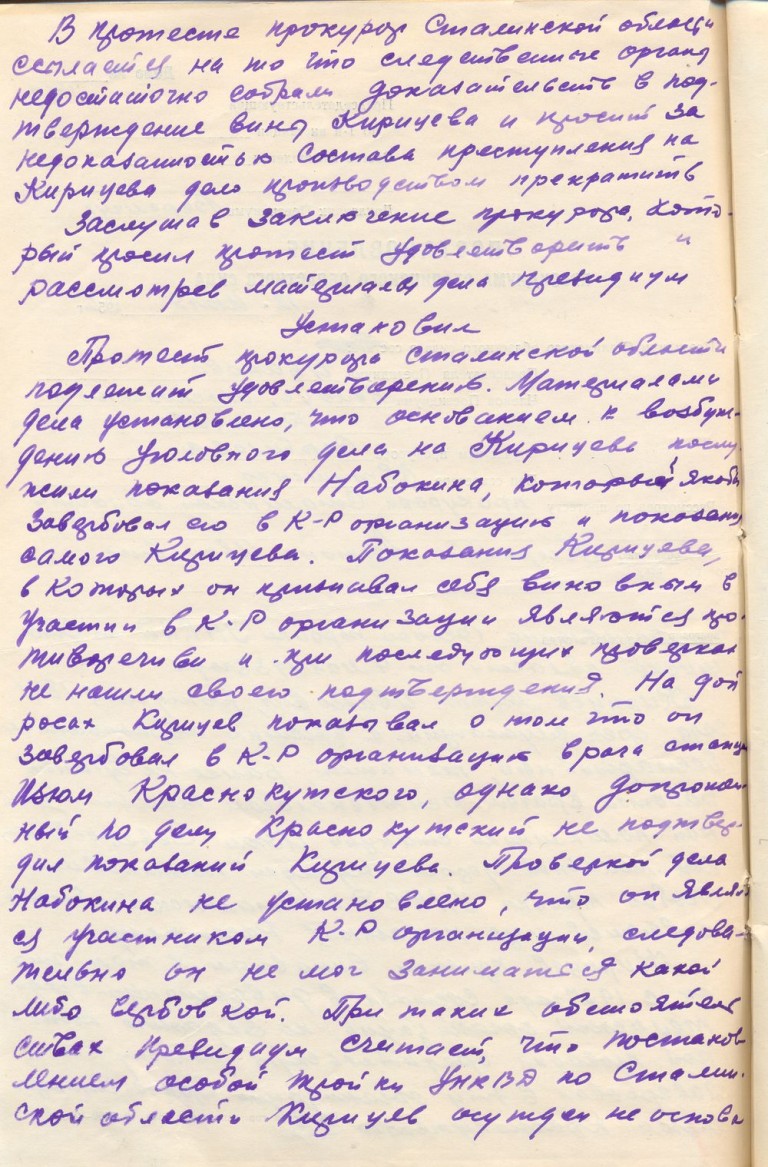 В протесте прокурор Сталинской области
ссылается на то что следственные органы
недостаточно собрали доказательств в под-
тверждение вины Кирицева и просит за
недоказанностью состава преступления на
Кирицева дело производством прекратить
Заслушав заключение прокурора, кото-
рый просил протест удовлетворить и
рассмотрев материалы дела президиум
Установил
Протест прокурора Сталинской области
подлежит удовлетворению. Материалами
дела установлено, что основанием к возбуж-
дению уголовного дела на Кирицева послу-
жили показания Набокина, который якобы
завербовал его в К-Р организацию и показания
самого Кирицева. Показания Кирицева,
в которых он признавал себя виновным в
участии в К-Р организации являются про-
тиворечивы и при последующих проверках
не нашли своего подтверждения. На доп
росах Кирицев показывал о том что он
завербовал в К-Р организацию врача станции
Изюм Краснокутского, однако допрошен
ный по делу Краснокутский не подтвер-
дил показаний Кирицева. Проверкой дела
Набокина не установлено, что он являл
ся участником К-Р организации, следова-
тельно он не мог заниматься какой
либо вербовкой. При таких обстоятель
ствах президиум считает, что постанов-
лением особой тройки УНКВД по Сталин-
ской области Кирицев осужден не основа